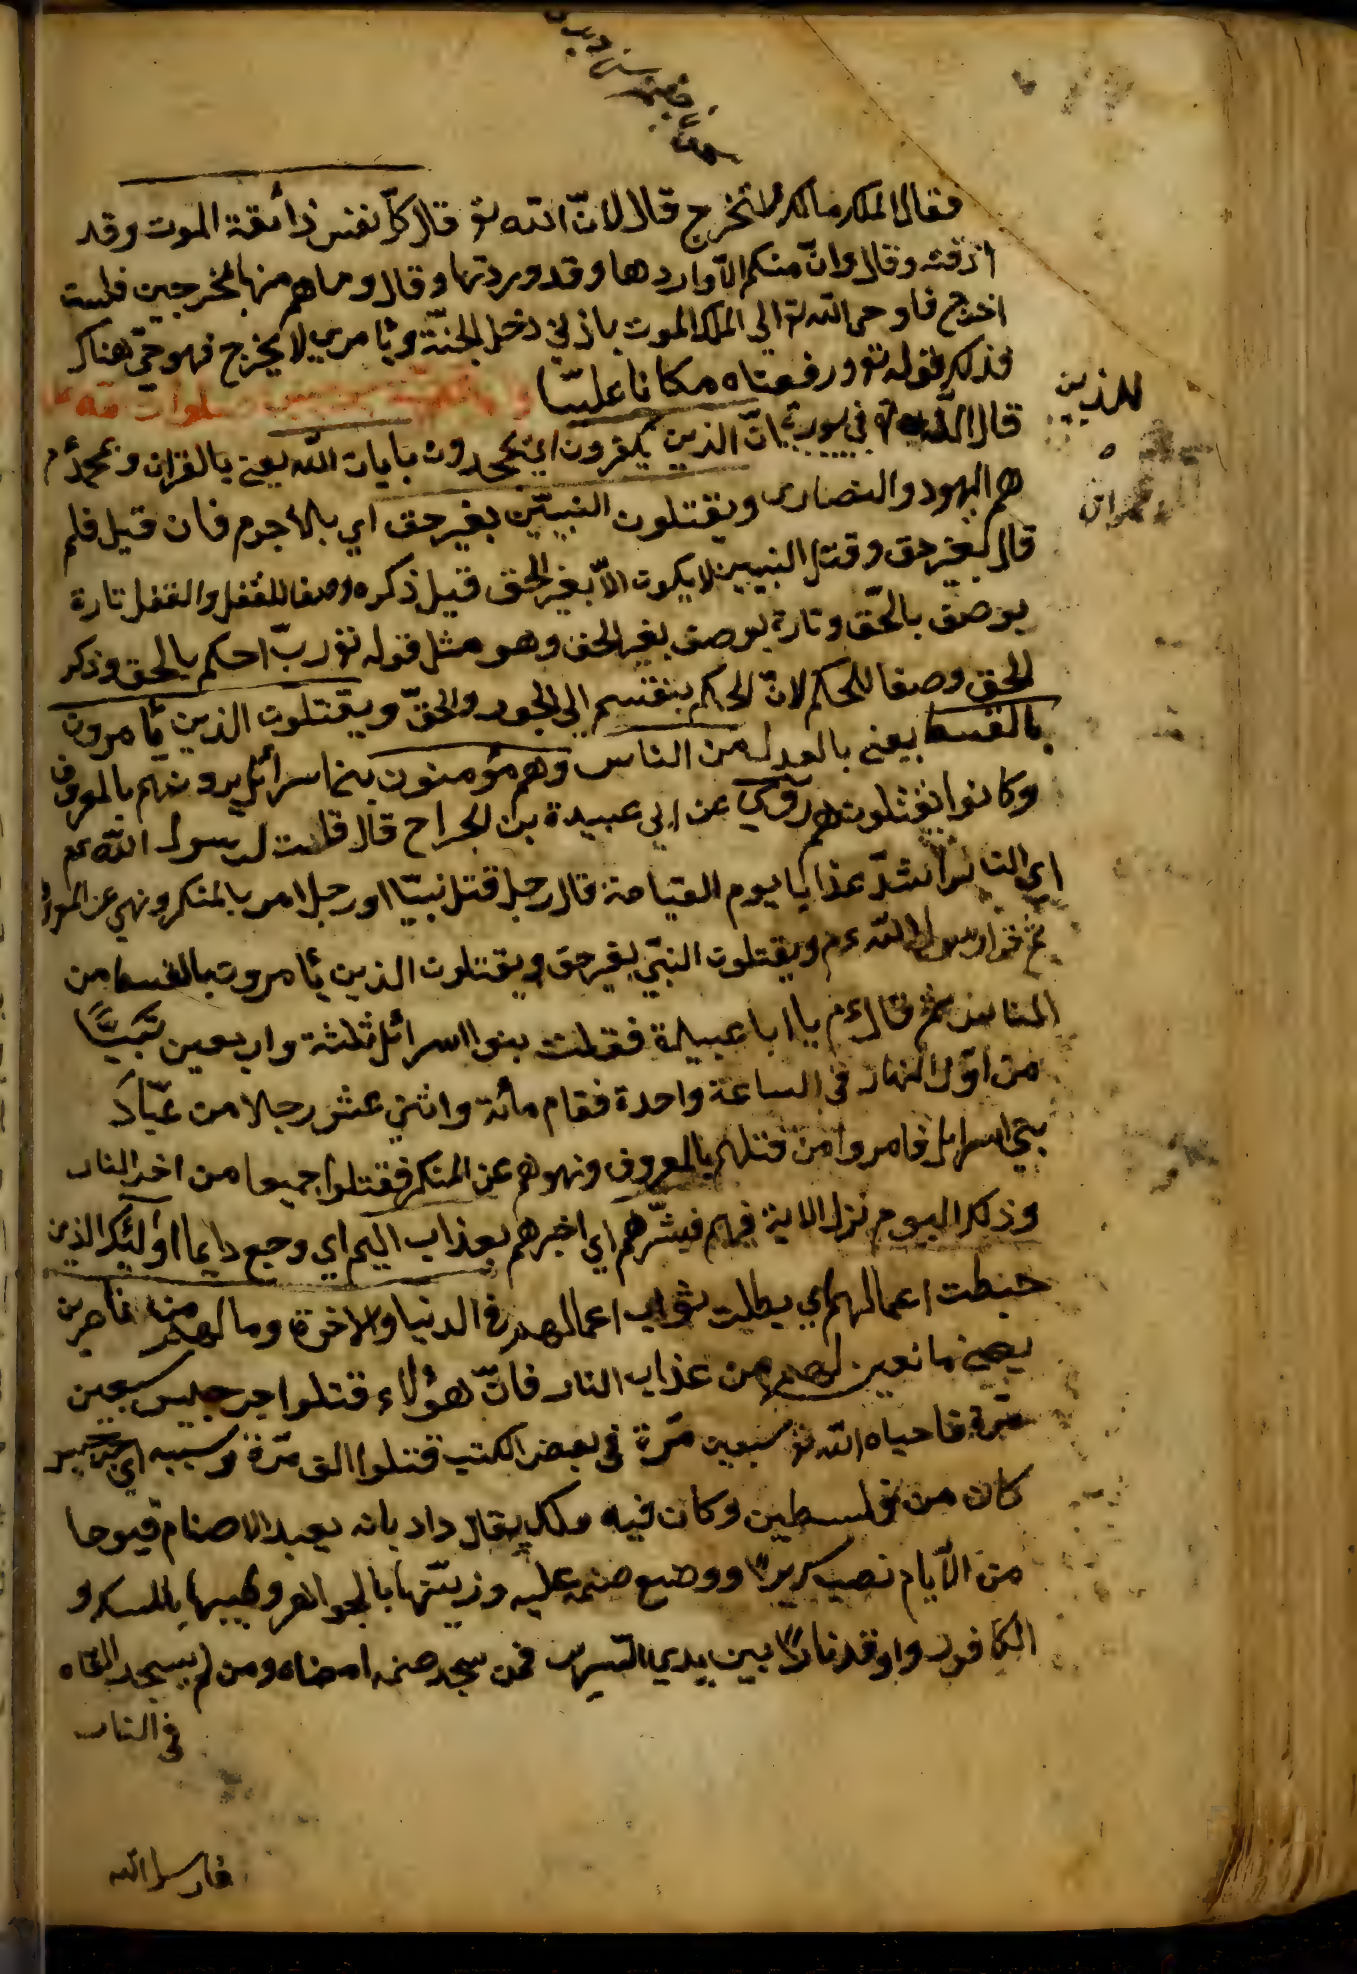 فقال الملك مالك لا تخرج قال لانّ الله تع قال كلّ نفس ذائقة الموت وقد
اذقته وقال وانّ منكم الاّ واردها وقد وردتها وقال وما هم منها بمخرجين فلست
اخرج فاوحى الله تع الى الملك الموت باذني دخل الجنّة وبامري لا يخرج فهو حيّ هناك
وذلك قوله تع ورفعناه مكانا عليّا
قال الله تع في سورة انّ الذين يكفرون اي يجحدون بايات الله يعني بالقران وبمحمّد م
هم اليهود والنصارى ويقتلون النبيّين بغير حق اي بلا جرم فان قيل فلم
قال بغير حق وقتل النبيين لا يكون الاّ بغير الحق قيل ذكره وصفا للقتل والقتل تارة
يوصف بالحّق وتارة يوصف بغير الحق وهو مثل قوله تع ربّ احكم بالحق وذكر
الحق وصفا للحكم لانّ الحكم ينقسم الى الجور والحقّ ويقتلون الذين يأمرون
بالقسط يعني بالعدل من الناس وهم مؤمنون بني اسرائل يرونهم بالمعروف
وكانوا يقتلونهم روي عن ابي عبيدة بن الجراح قال قلت لرسول الله عم
اي الناس اشدّ عذابا يوم القيامة قال رجل قتل نبيّا او رجل امر بالمنكر ونهى عن المعروف
ثم قرا رسول الله عم ويقتلون النبيّ بغير حق ويقتلون الذين يأمرون بالقسط من
الناس ثم قال عم يا ابا عبيدة فقتلت بنوا اسرائل ثلثة واربعين نَبيًّا
من اوّل النهار في الساعة واحدة فقام مائة واثني عشر رجلا من عبّاد
بني اسرائل فامروا من قتلهم بالمعروف ونهوهم عن المنكر فقتلوا جميعا من اخر النهار
وذلك اليوم نزل الاية فيهم فبشّرهم اي اخبرهم بعذاب اليم اي وجع دايما اولئك الذين
حبطت اعمالهم اي بطلت ثواب اعمالهم في الدنيا والاخرة وما لهم من ناصرين
يعني مانعين لهم من عذاب النار فانّ هؤلاء قتلوا جرجيس سبعين
مرّة فاحياه الله تع سبعين مرّة في بعض الكتب قتلوا الف مرّة وسببه اي جرجيس
كان من فلسطين وكان فيه ملك يقال داديانه يعبد الاصنام فيوما
من الايّام نصب سريرا ووضع صنمه عليه وزيّنها بالجواهر وطيبها بالمسك و
الكافور واوقد نارا بين يدي السرير فمن سجد صنمه امضاه ومن لم يسجد القاه
في النار
فارسل الله